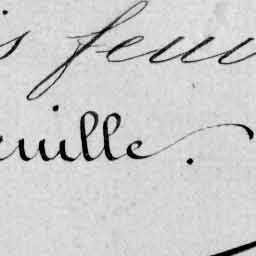 s feui
euille.